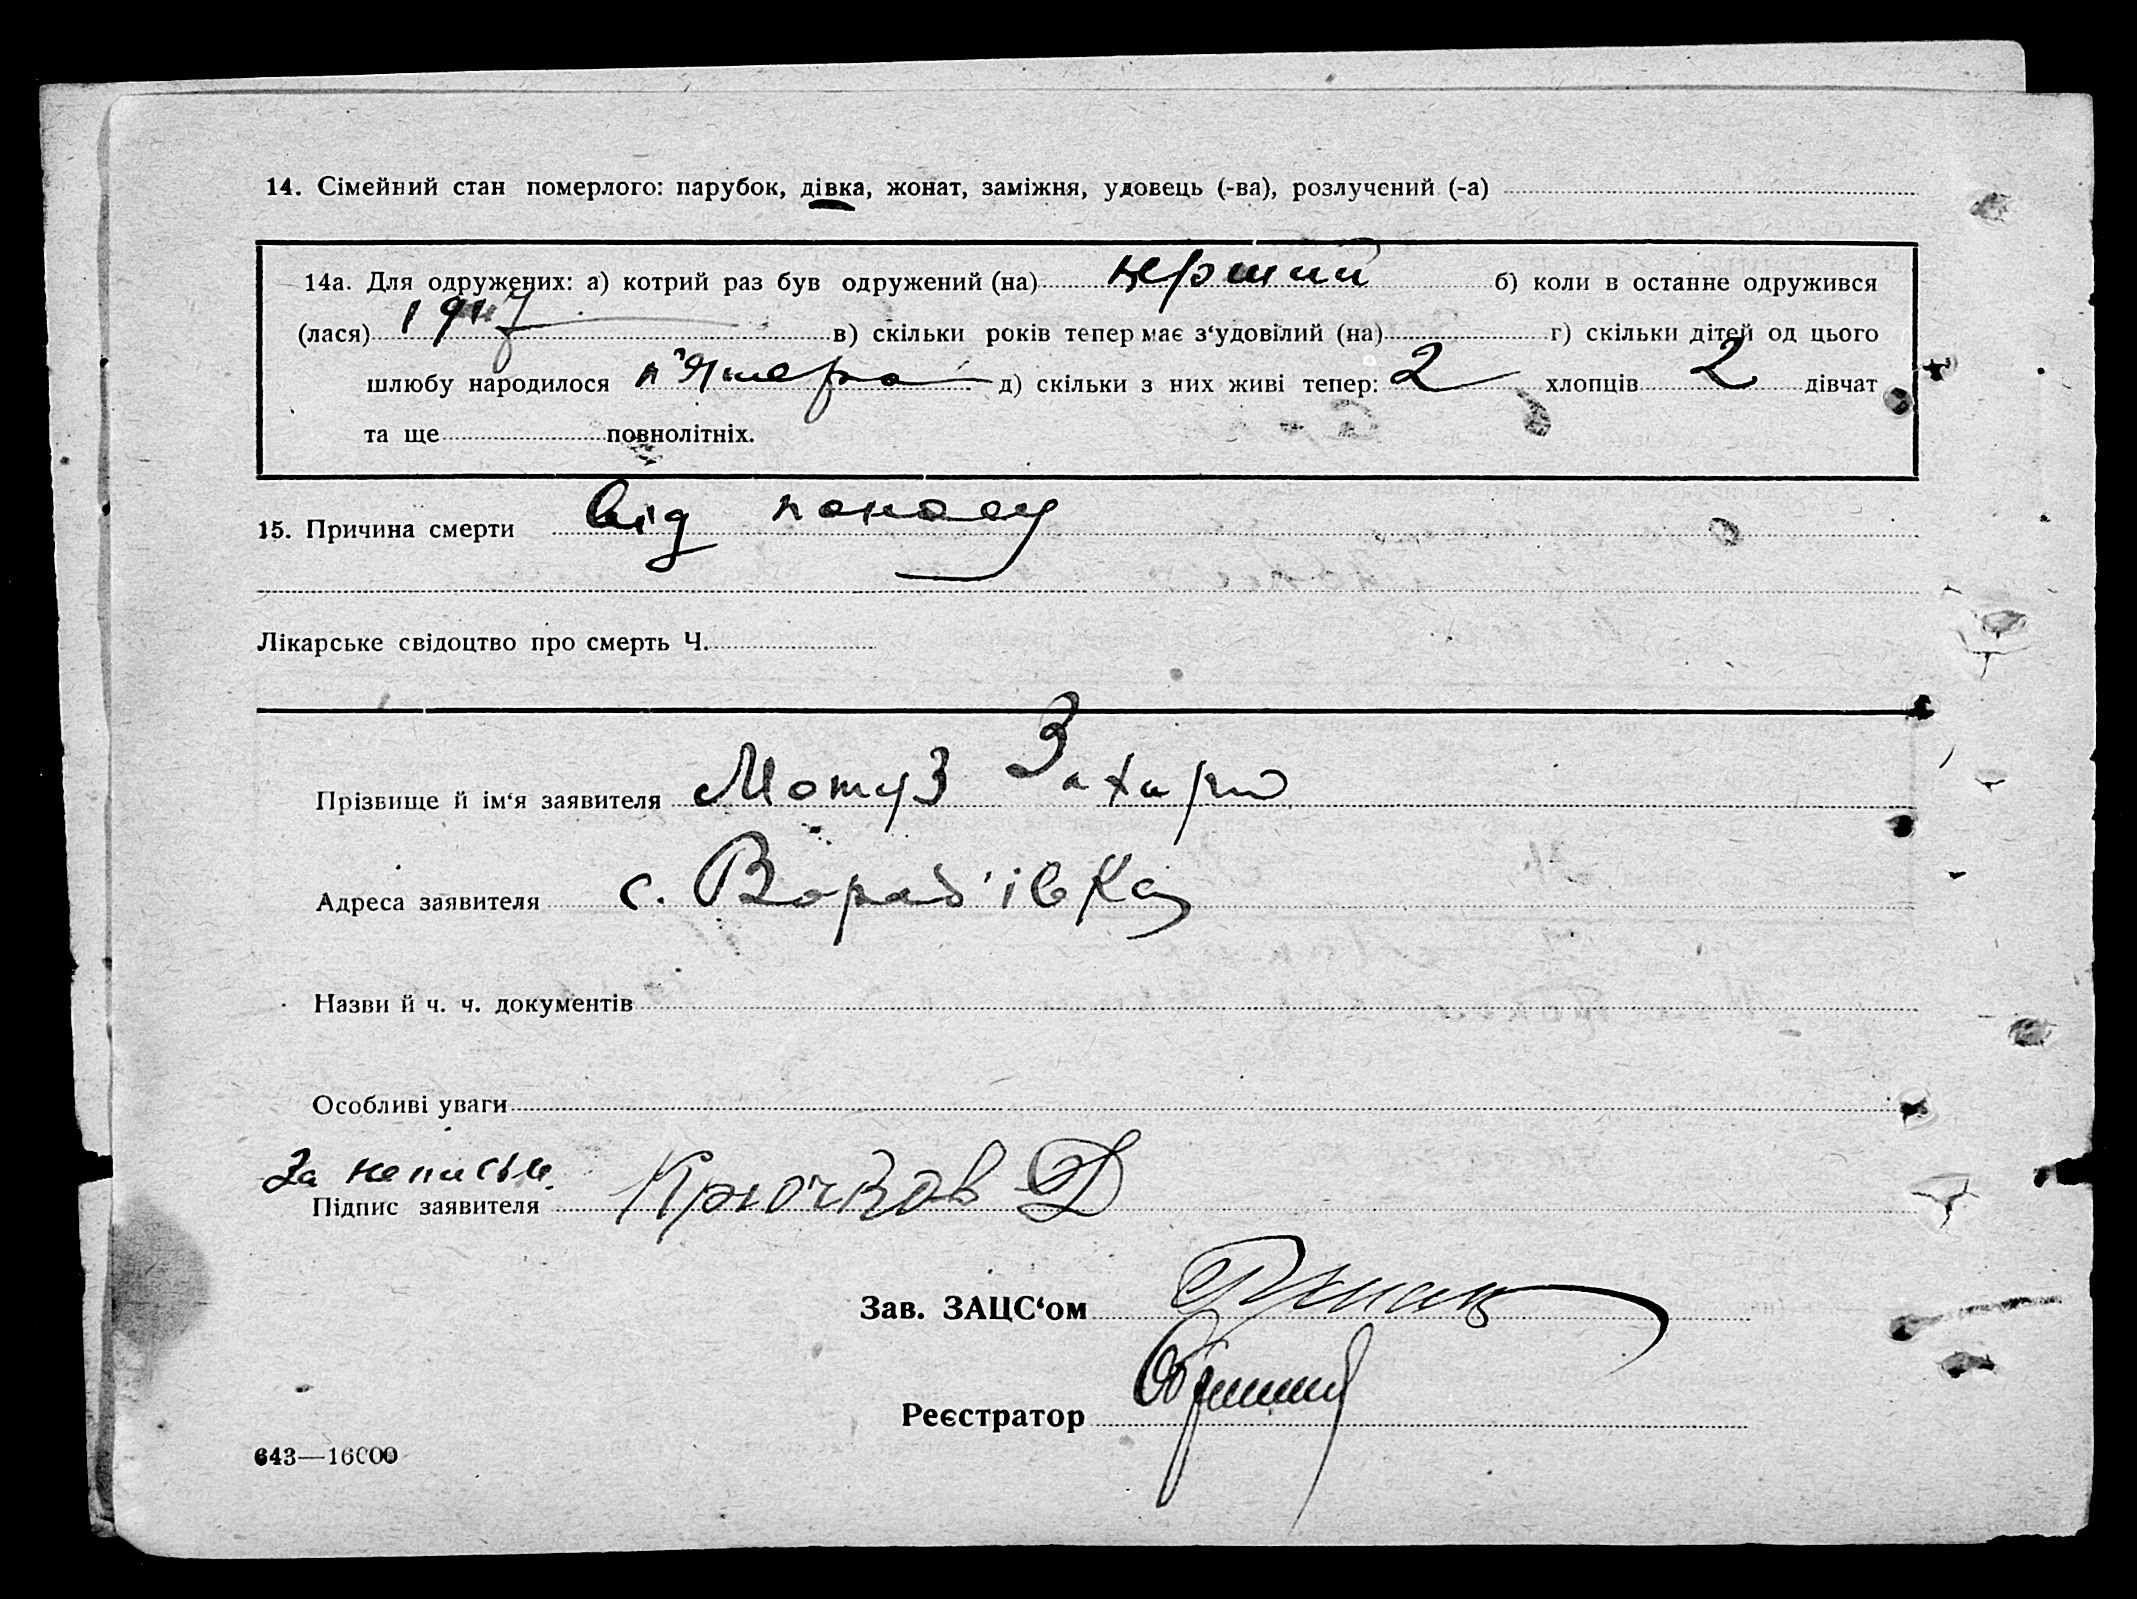 14. Сімейний стан померлого: парубок, дівка, жонат, заміжня, удовець (-ва), розлучений (-а)
14а. Для одружених: а) котрий раз був одружений (на) перший б) коли в останне одружився
(лася) 1917 в) скільки років тепер має з‘удовілий (на) г) скільки дітей од цього
шлюбу народилося п'ятеро д) скільки з них живі тепер: 2 хлопців 2 дівчат
та ще повнолітніх.
15. Причина смерти від поносу
Лікарське свідоцтво про смерть Ч.
Прізвище й ім‘я заявителя Мотуз Захарій
Адреса заявителя с. Вораб'івка
Назви й ч. ч. документів
Особливі уваги
За неписьм.
Підпис заявителя Крючков Д
Зав. ЗАЦС‘ом
Реєстратор
643—16000